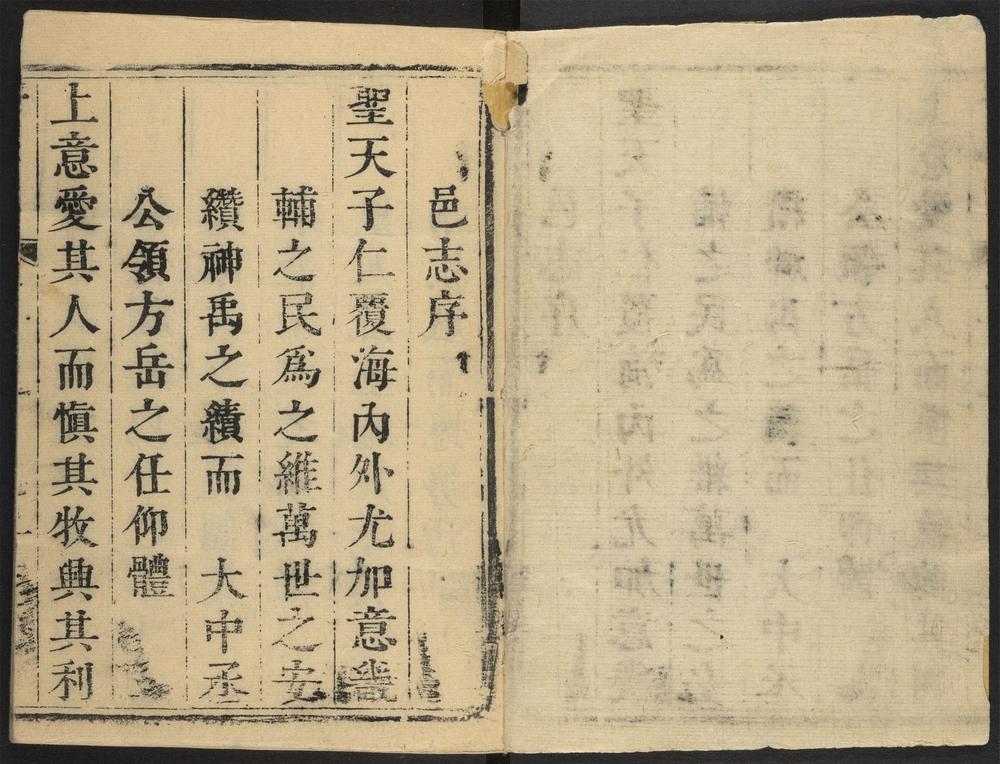 邑志序
聖天子仁覆海內外尤加意畿
輔之民爲之維萬世之安
纘神禹之績而　大中丞
公領方岳之任仰體
上意愛其人而愼其牧興其利